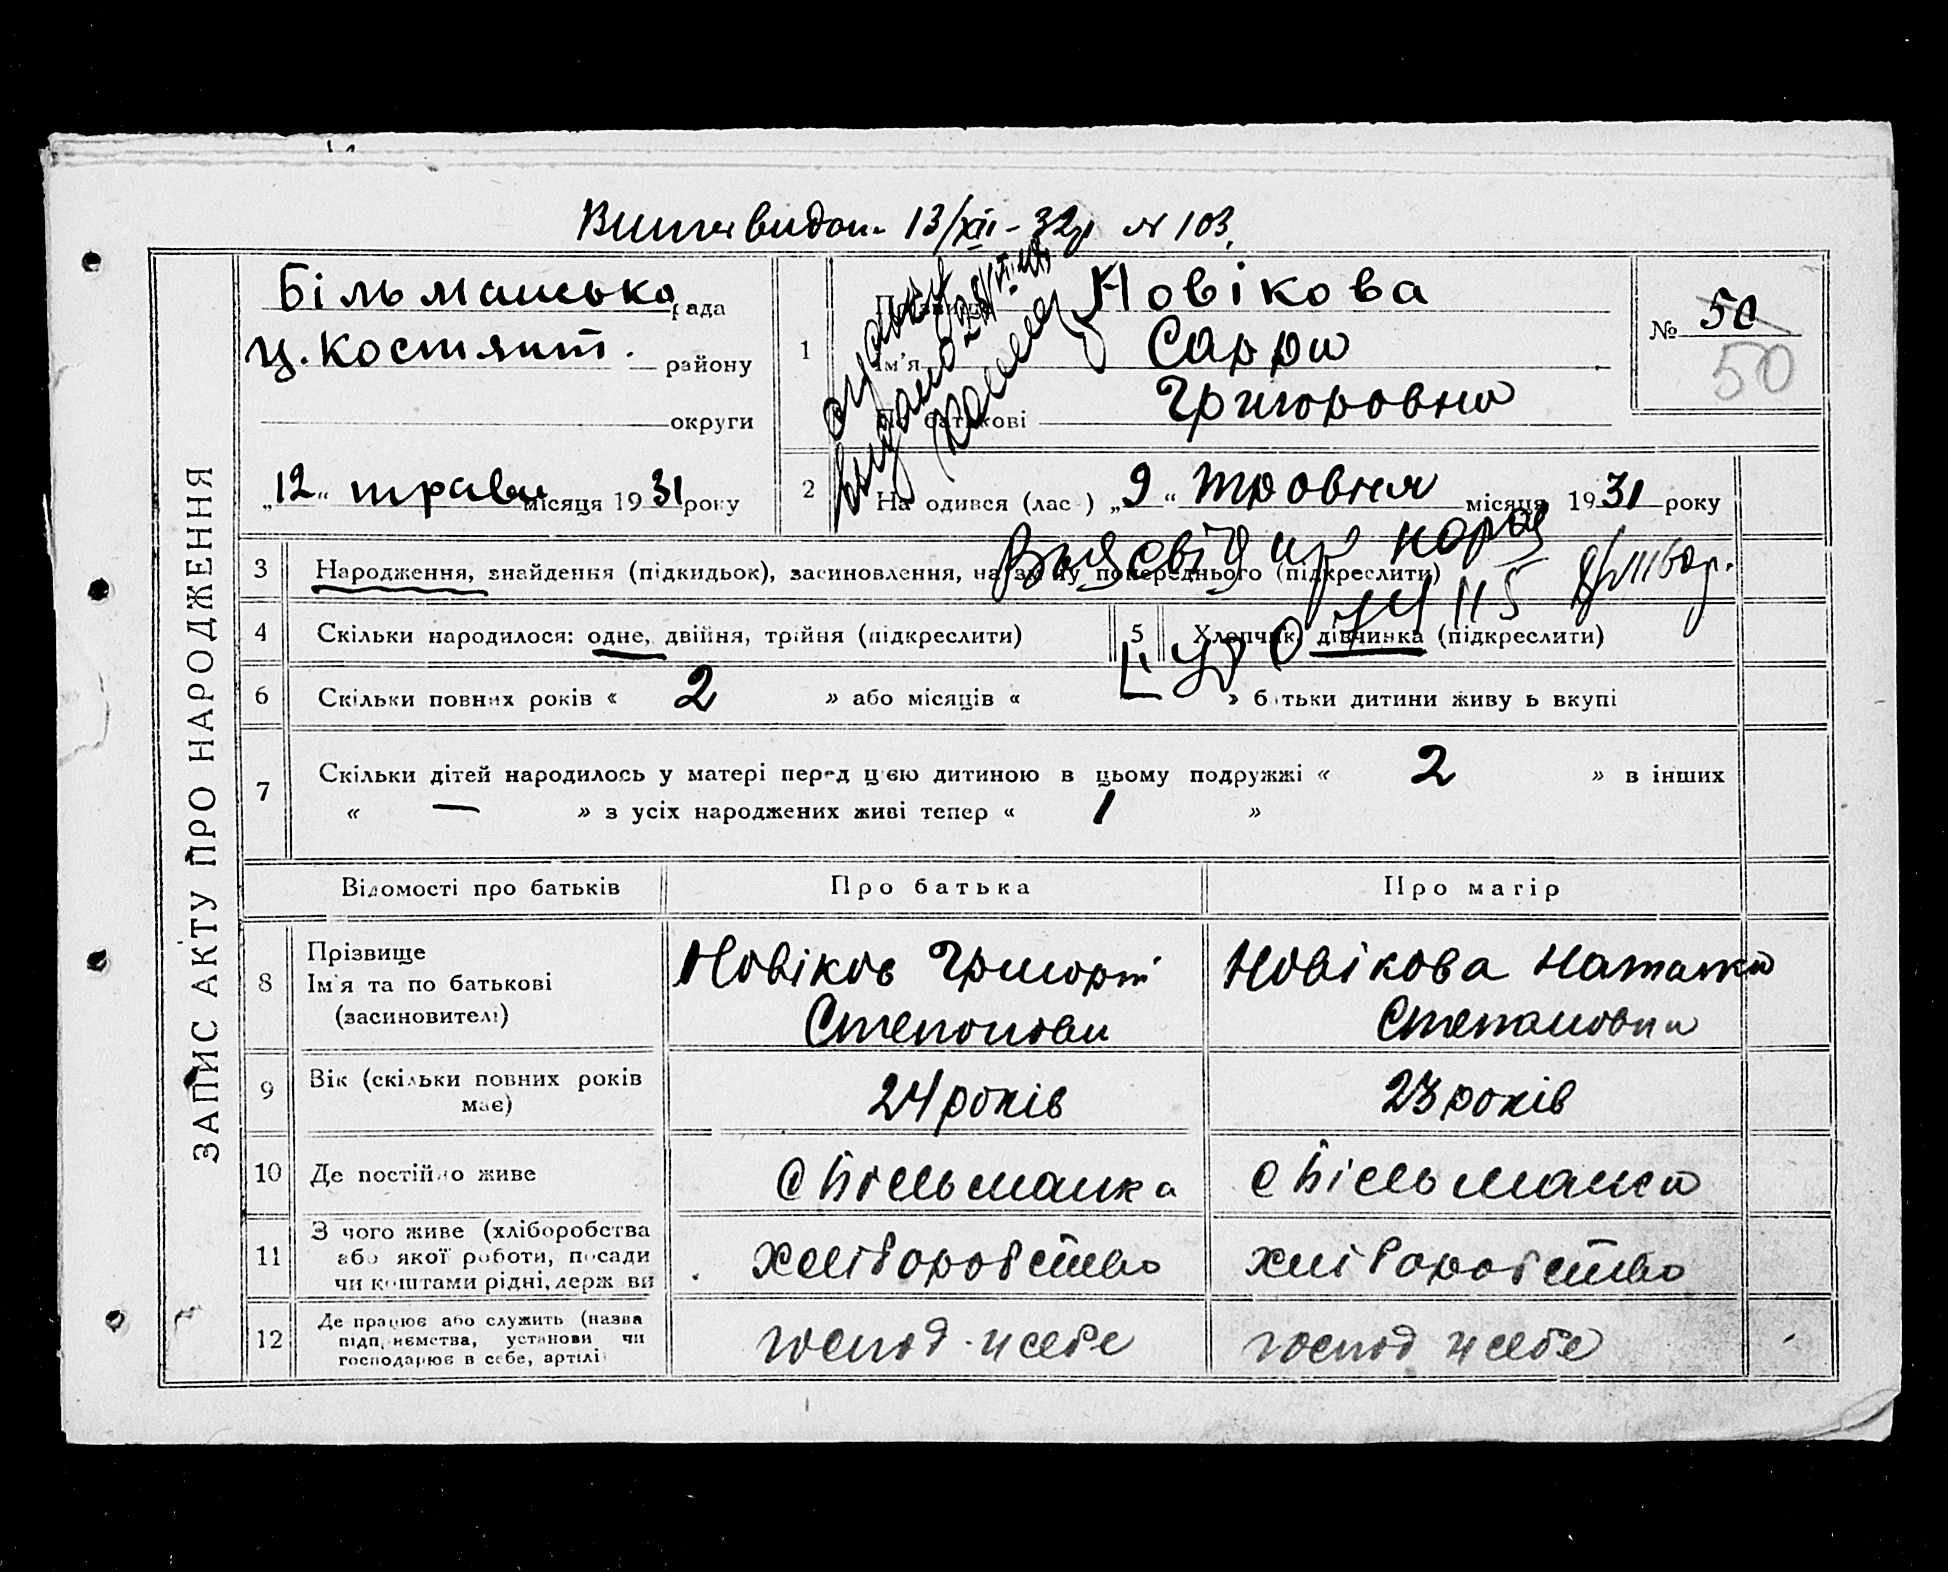 13/XII-32р № 103.
ЗАПИС АКТУ ПРО НАРОДЖЕННЯ
Більманська рада
Ц. Костянт. району
округи
"12" травн місяця 1931 року
1
Прізвище Новікова
Ім'я Сарра
По батькові Григоровна
№ 50
50
2
Народився (лась) "9" травня місяця 1931 року
3
Народження, знайдення (підкидьок), засиновлення, на зміну попереднього (підкреслити)
4
Скільки народилося: одне, двійня, трійня (підкреслити)
5
Хлопчик, дівчинка (підкреслити)
6
Скільки повних років « 2 » або місяців « » батьки дитини живуть вкупі
7
Скільки дітей народилось у матері перед цією дитиною в цьому подружжі « 2 » в інших
« — » з усіх народжених живі тепер « 1 »
Відомості про батьків
Про батька
Про матір
8
Прізвище
Ім'я та по батькові
(засновителі)
Новіков Григорій
Степанови
Новікова Наталка
Степановна
9
Вік (скільки повних років
має)
24 років
23 років
10
Де постійно живе
с Більманка
с Більманка
11
З чого живе (хліборобства
або якої роботи, посади
чи коштами рідні, держави
хліборобство
хліборобство
12
Де працює або служить (назва
підприємства, установи чи
господарює в себе, артілі
господ. у себе
господ у себе